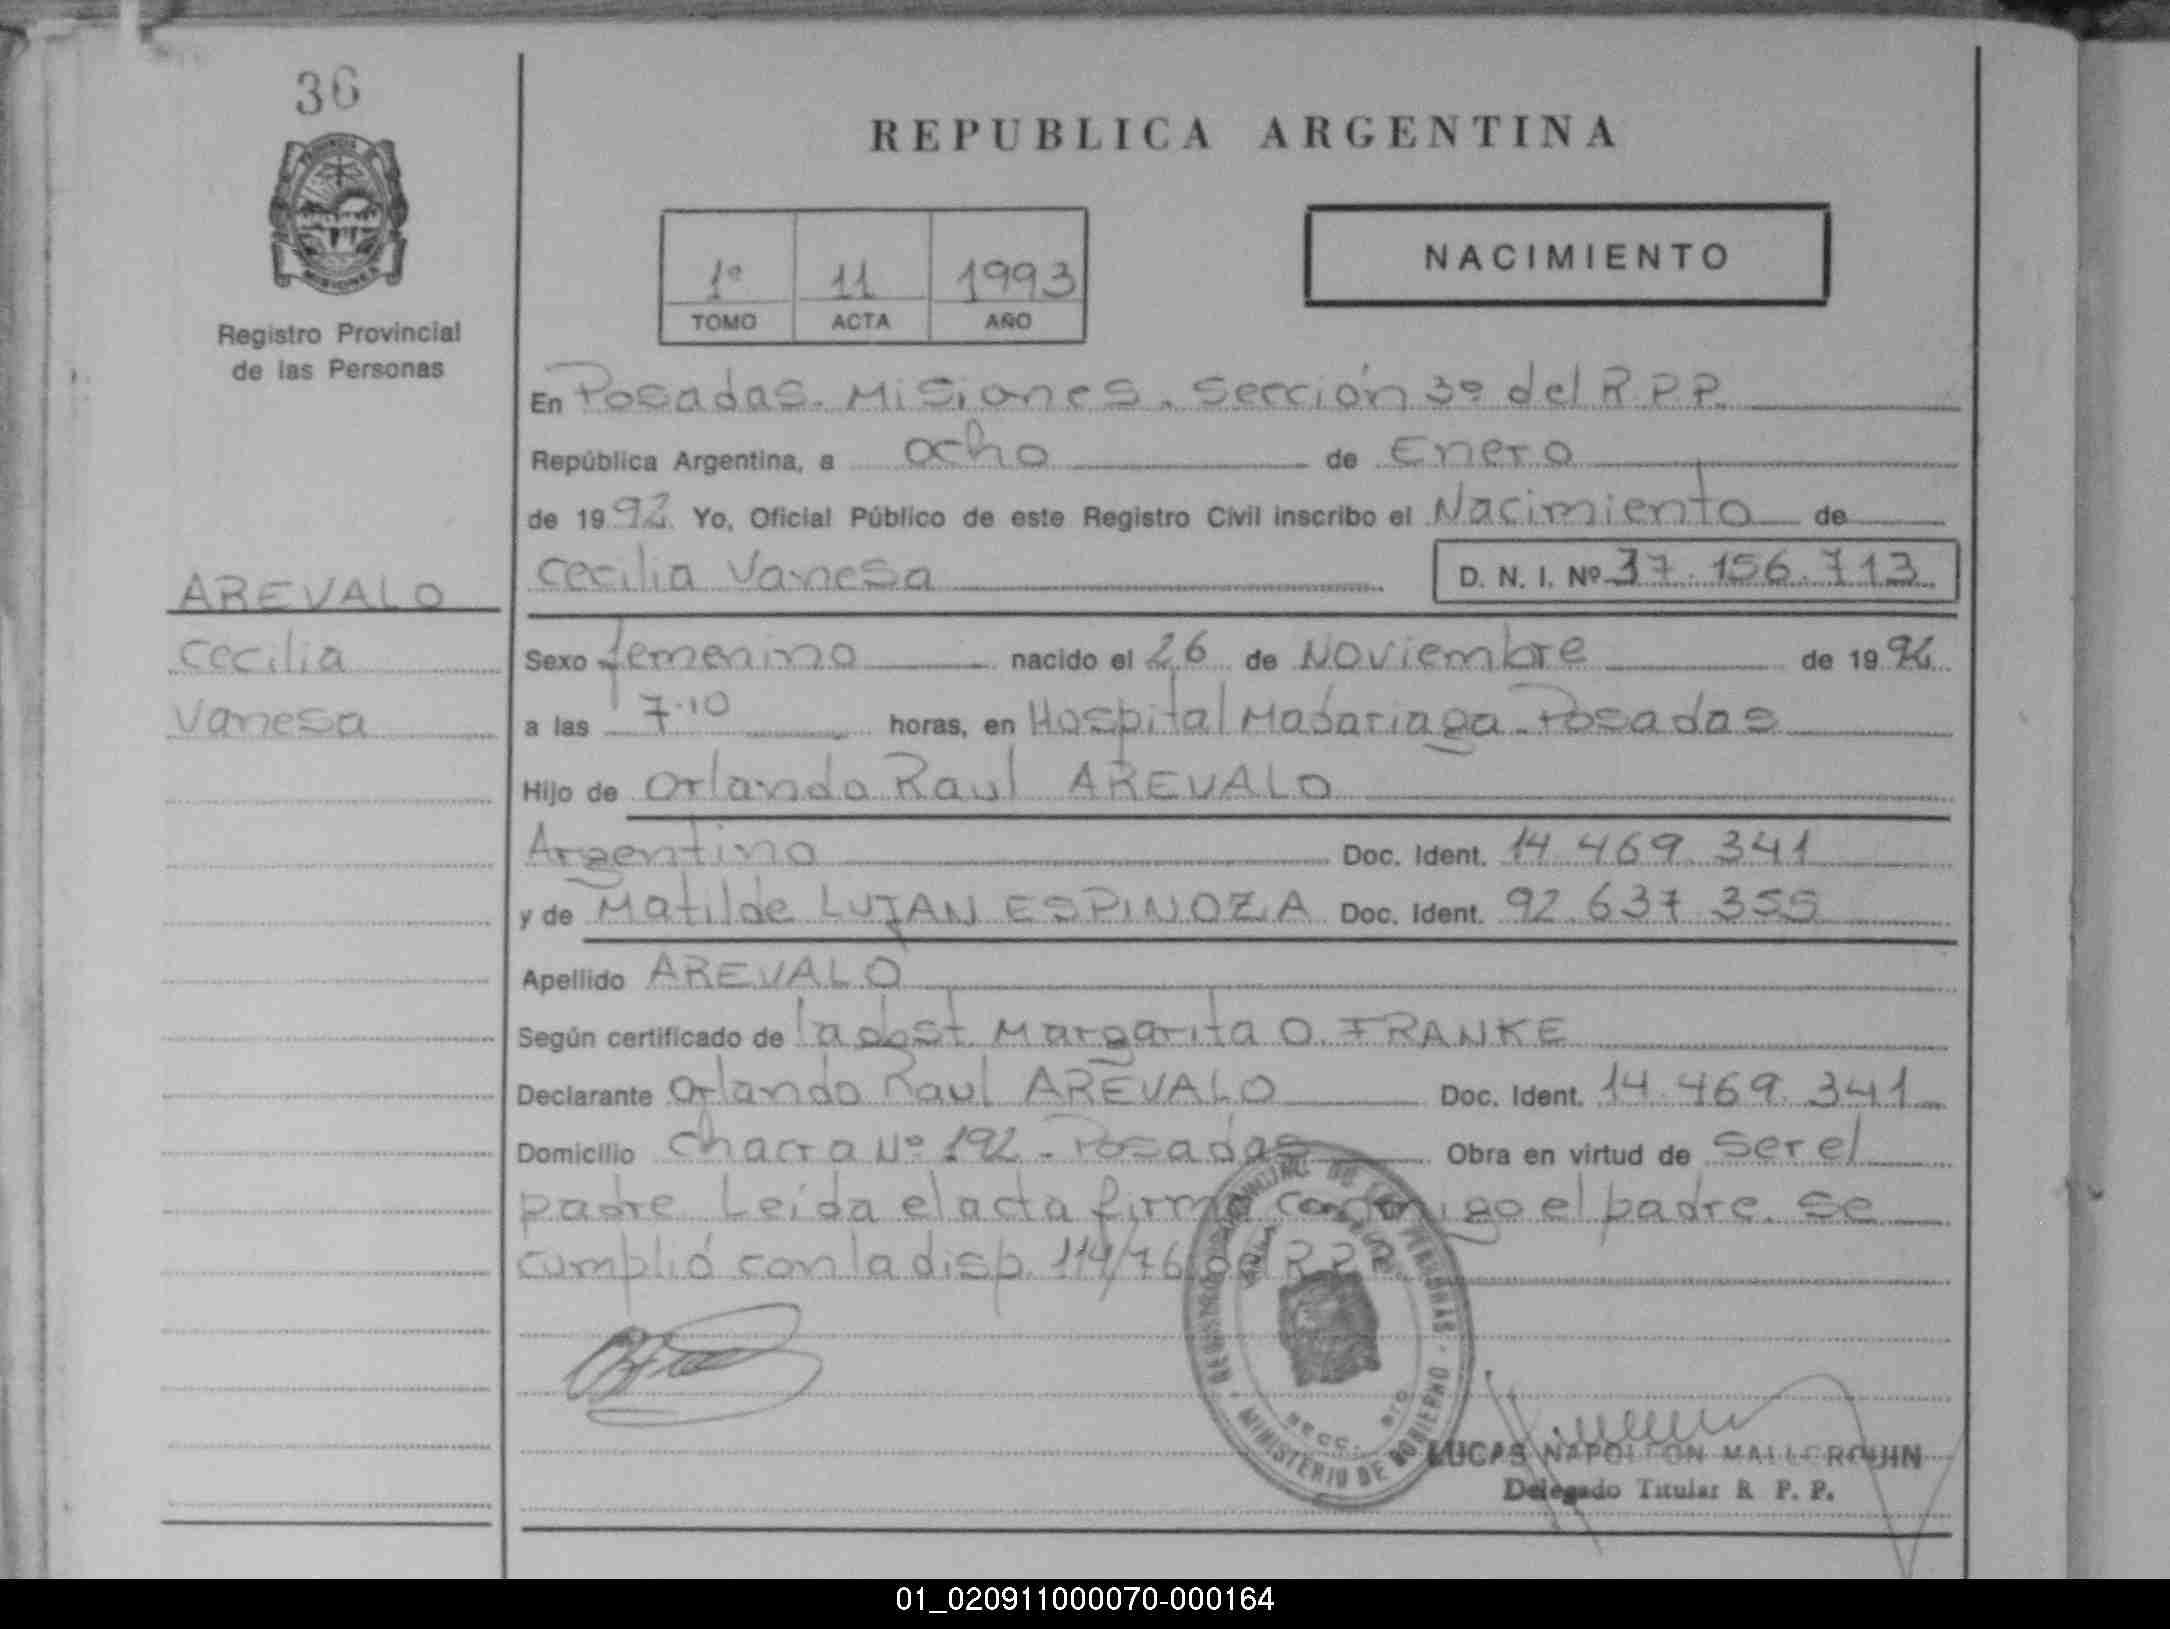 36
REPUBLICA ARGENTINA
NACIMIENTO
1º 11 1993
TOMO ACTA AÑO
Registro Provincial
de las Personas
En Posadas. Misiones. Sección 3º del R.P.P.
República Argentina, a ocho de Enero
de 19 Yo, Oficial Público de este Registro Civil inscribo el Nacimiento de
Cecilia Vanesa D. N. I. Nº 37.156.713
AREVALO
Cecilia
Vanesa
Sexo femenino nacido el 26 de Noviembre de 19
a las 7.10 horas, en Hospital Madariaga - Posadas
Hijo de Orlando Raul AREVALO
Argentino Doc. Ident. 14.469.341
y de Matilde LUJAN ESPINOZA Doc. Ident. 92.637.355
Apellido AREVALO
Según certificado de la obst. Margarita O. FRANKE
Declarante Orlando Raul AREVALO Doc. Ident. 14.469.341
Domicilio Chacra Nº 192 - Posadas Obra en virtud de ser el
padre. Leída el acta firma conmigo el padre. Se
cumplió con la disp. 114/76 del R.P.P.
REGISTRO PROVINCIAL DE LAS PERSONAS
MINISTERIO DE GOBIERNO
SECC. 3ra
LUCAS NAPOLEON MALLORQUIN
Delegado Titular R. P. P.
01_020911000070-000164